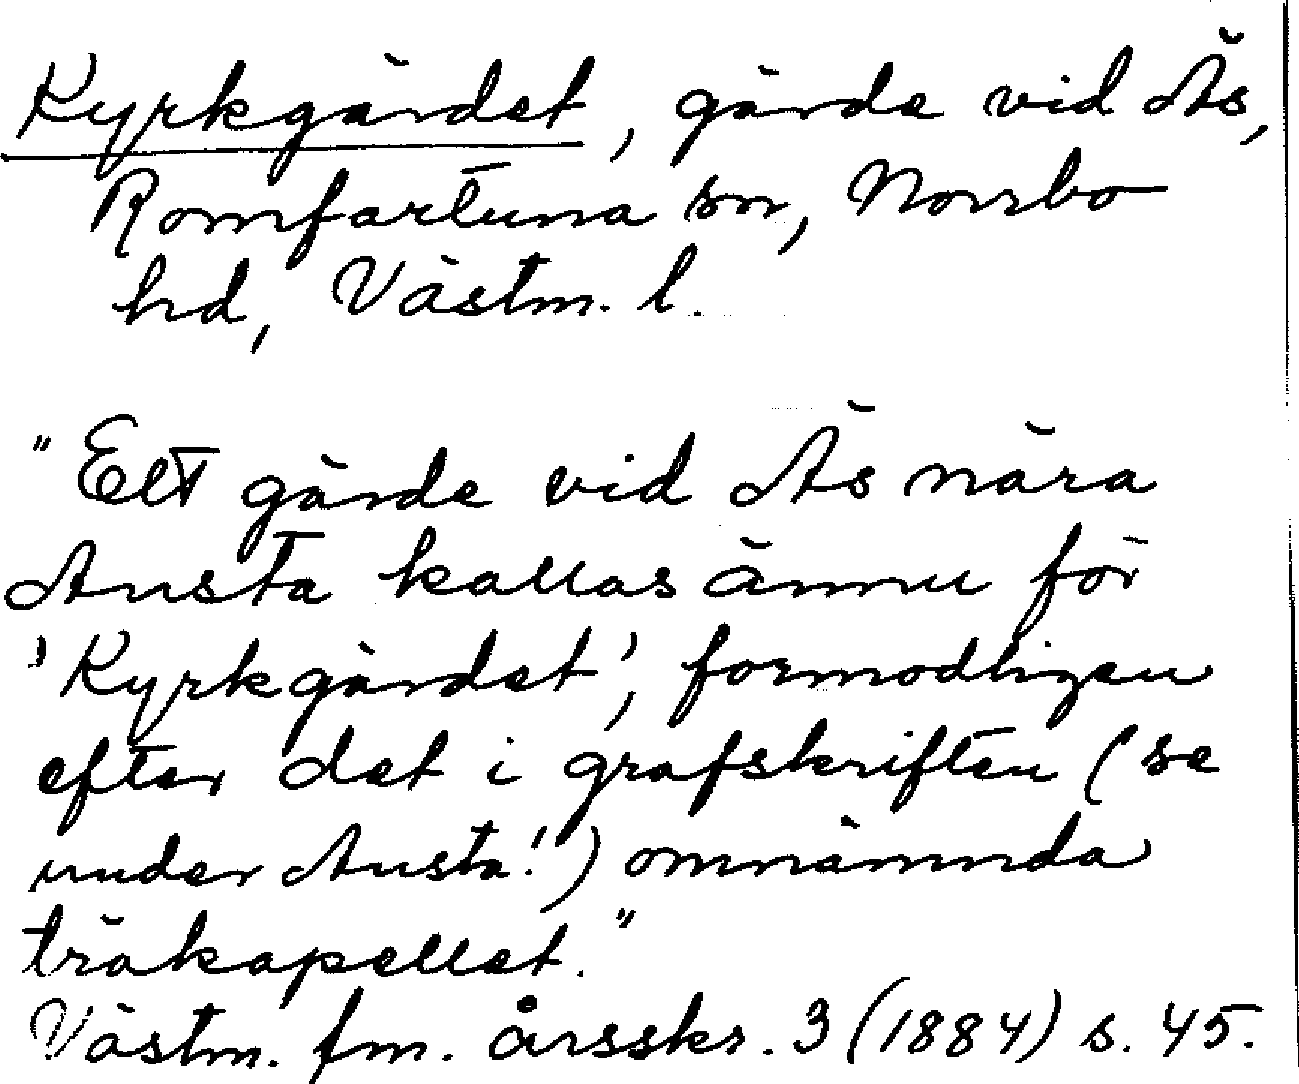 Kyrkgärdet, gärde vid Äs,
Romfartuna sn, Norrbo
hd, Västm. l.
"Ett gärde vid Äs nära
Ansta kallas ännu för
'Kyrkgärdet', förmodligen
efter det i grafskriften (se
under Ansta!) omnämnda
träkapellet."
Västm. fm. årsskr. 3 (1884) s. 45.